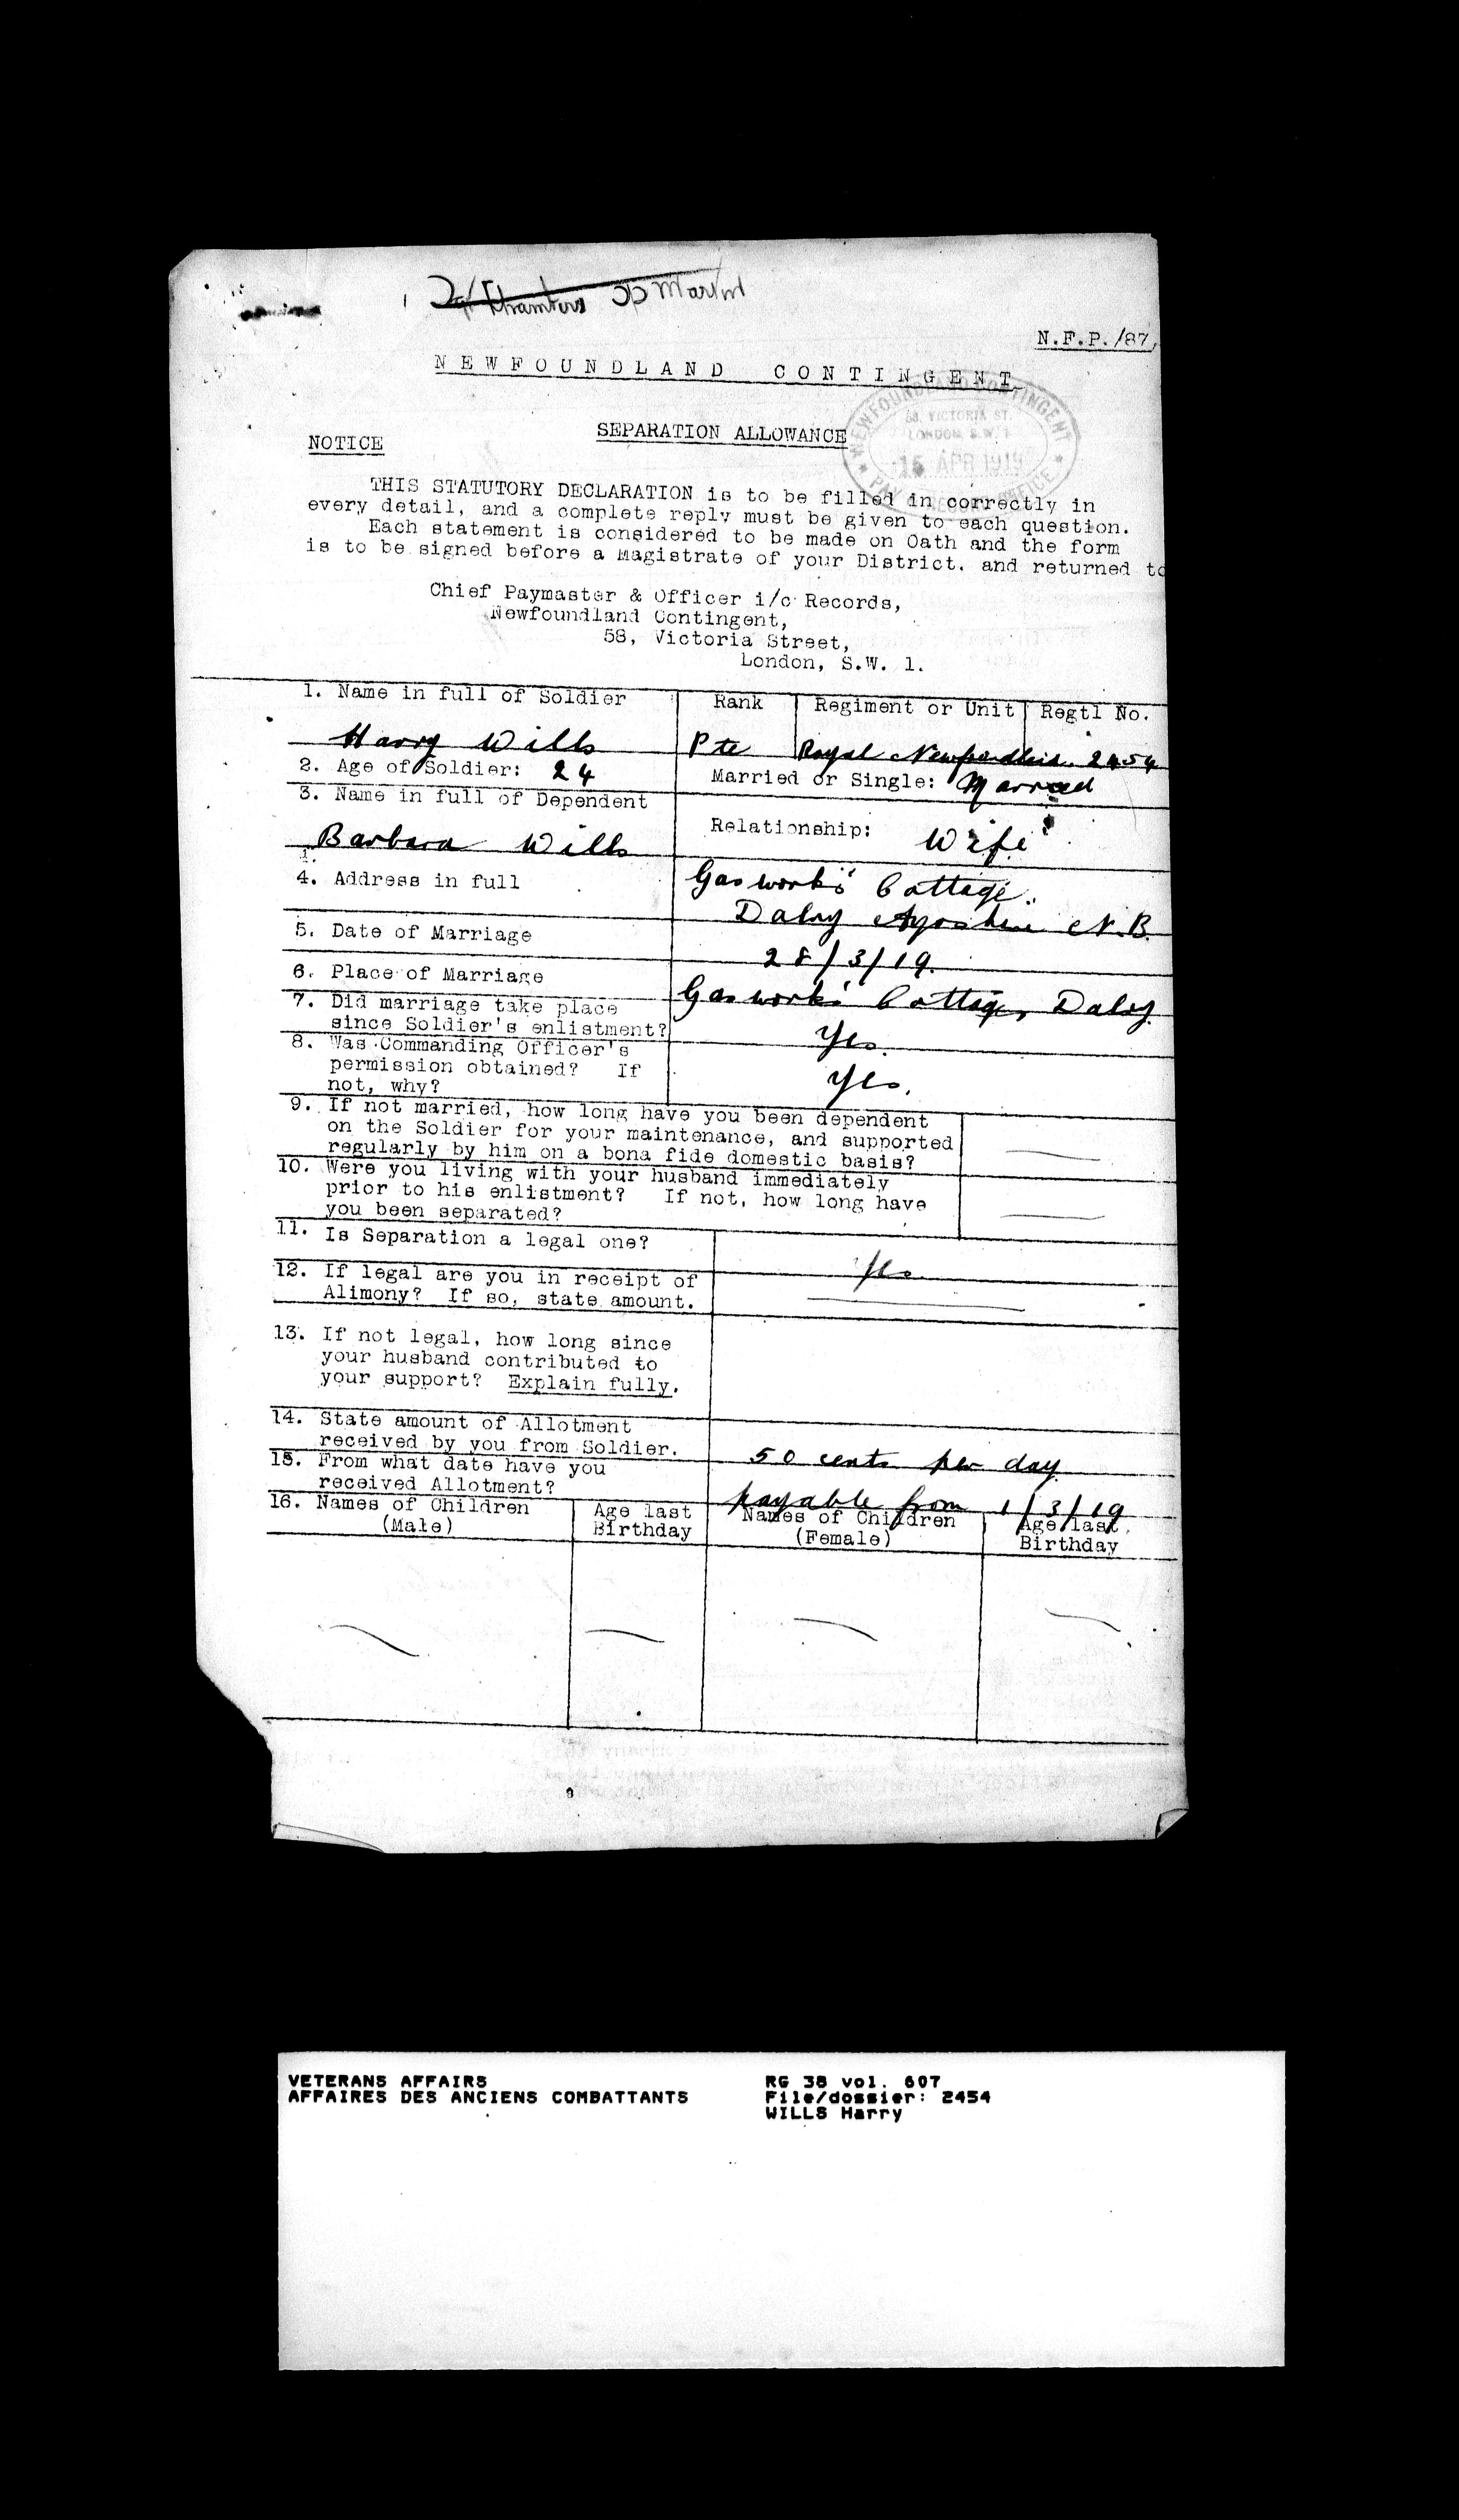 Martin
N.F.P./87,
NEWFOUNDLAND CONTINGENT
NEWFOUNDLAND CONTINGENT
58, VICTORIA ST.
LONDON, S.W. 1
15 APR 1919
PAY & RECORD OFFICE
SEPARATION ALLOWANCE
NOTICE
THIS STATUTORY DECLARATION is to be filled in correctly in
every detail, and a complete reply must be given to each question.
Each statement is considered to be made on Oath and the form
is to be signed before a Magistrate of your District. and returned to
Chief Paymaster & Officer i/c Records,
Newfoundland Contingent,
58, Victoria Street,
London, S.W. 1.
1. Name in full of Soldier Rank Regiment or Unit Regtl No.
Harry Wills Pte Royal 2454
2. Age of Soldier: 24 Married or Single: Married
3. Name in full of Dependent Relationship: Wife
Barbara Wills
4. Address in full Gasworks Cottage.
Dalry Ayrshire N.B.
5. Date of Marriage 28/3/19.
6. Place of Marriage Gasworks Cottage, Dalry.
7. Did marriage take place
since Soldier's enlistment? Yes.
8. Was Commanding Officer's
permission obtained? If
not, why? Yes.
9. If not married, how long have you been dependent
on the Soldier for your maintenance, and supported
regularly by him on a bona fide domestic basis?
10. Were you living with your husband immediately
prior to his enlistment? If not, how long have
you been separated?
11. Is Separation a legal one? Yes
12. If legal are you in receipt of
Alimony? If so, state amount.
13. If not legal, how long since
your husband contributed to
your support? Explain fully.
14. State amount of Allotment
received by you from Soldier. 50 cents per day
15. From what date have you
received Allotment? payable from 1/3/19
16. Names of Children Age last Names of Children Age last
(Male) Birthday (Female) Birthday
VETERANS AFFAIRS RG 38 vol. 607
AFFAIRES DES ANCIENS COMBATTANTS File/dossier: 2454
WILLS Harry